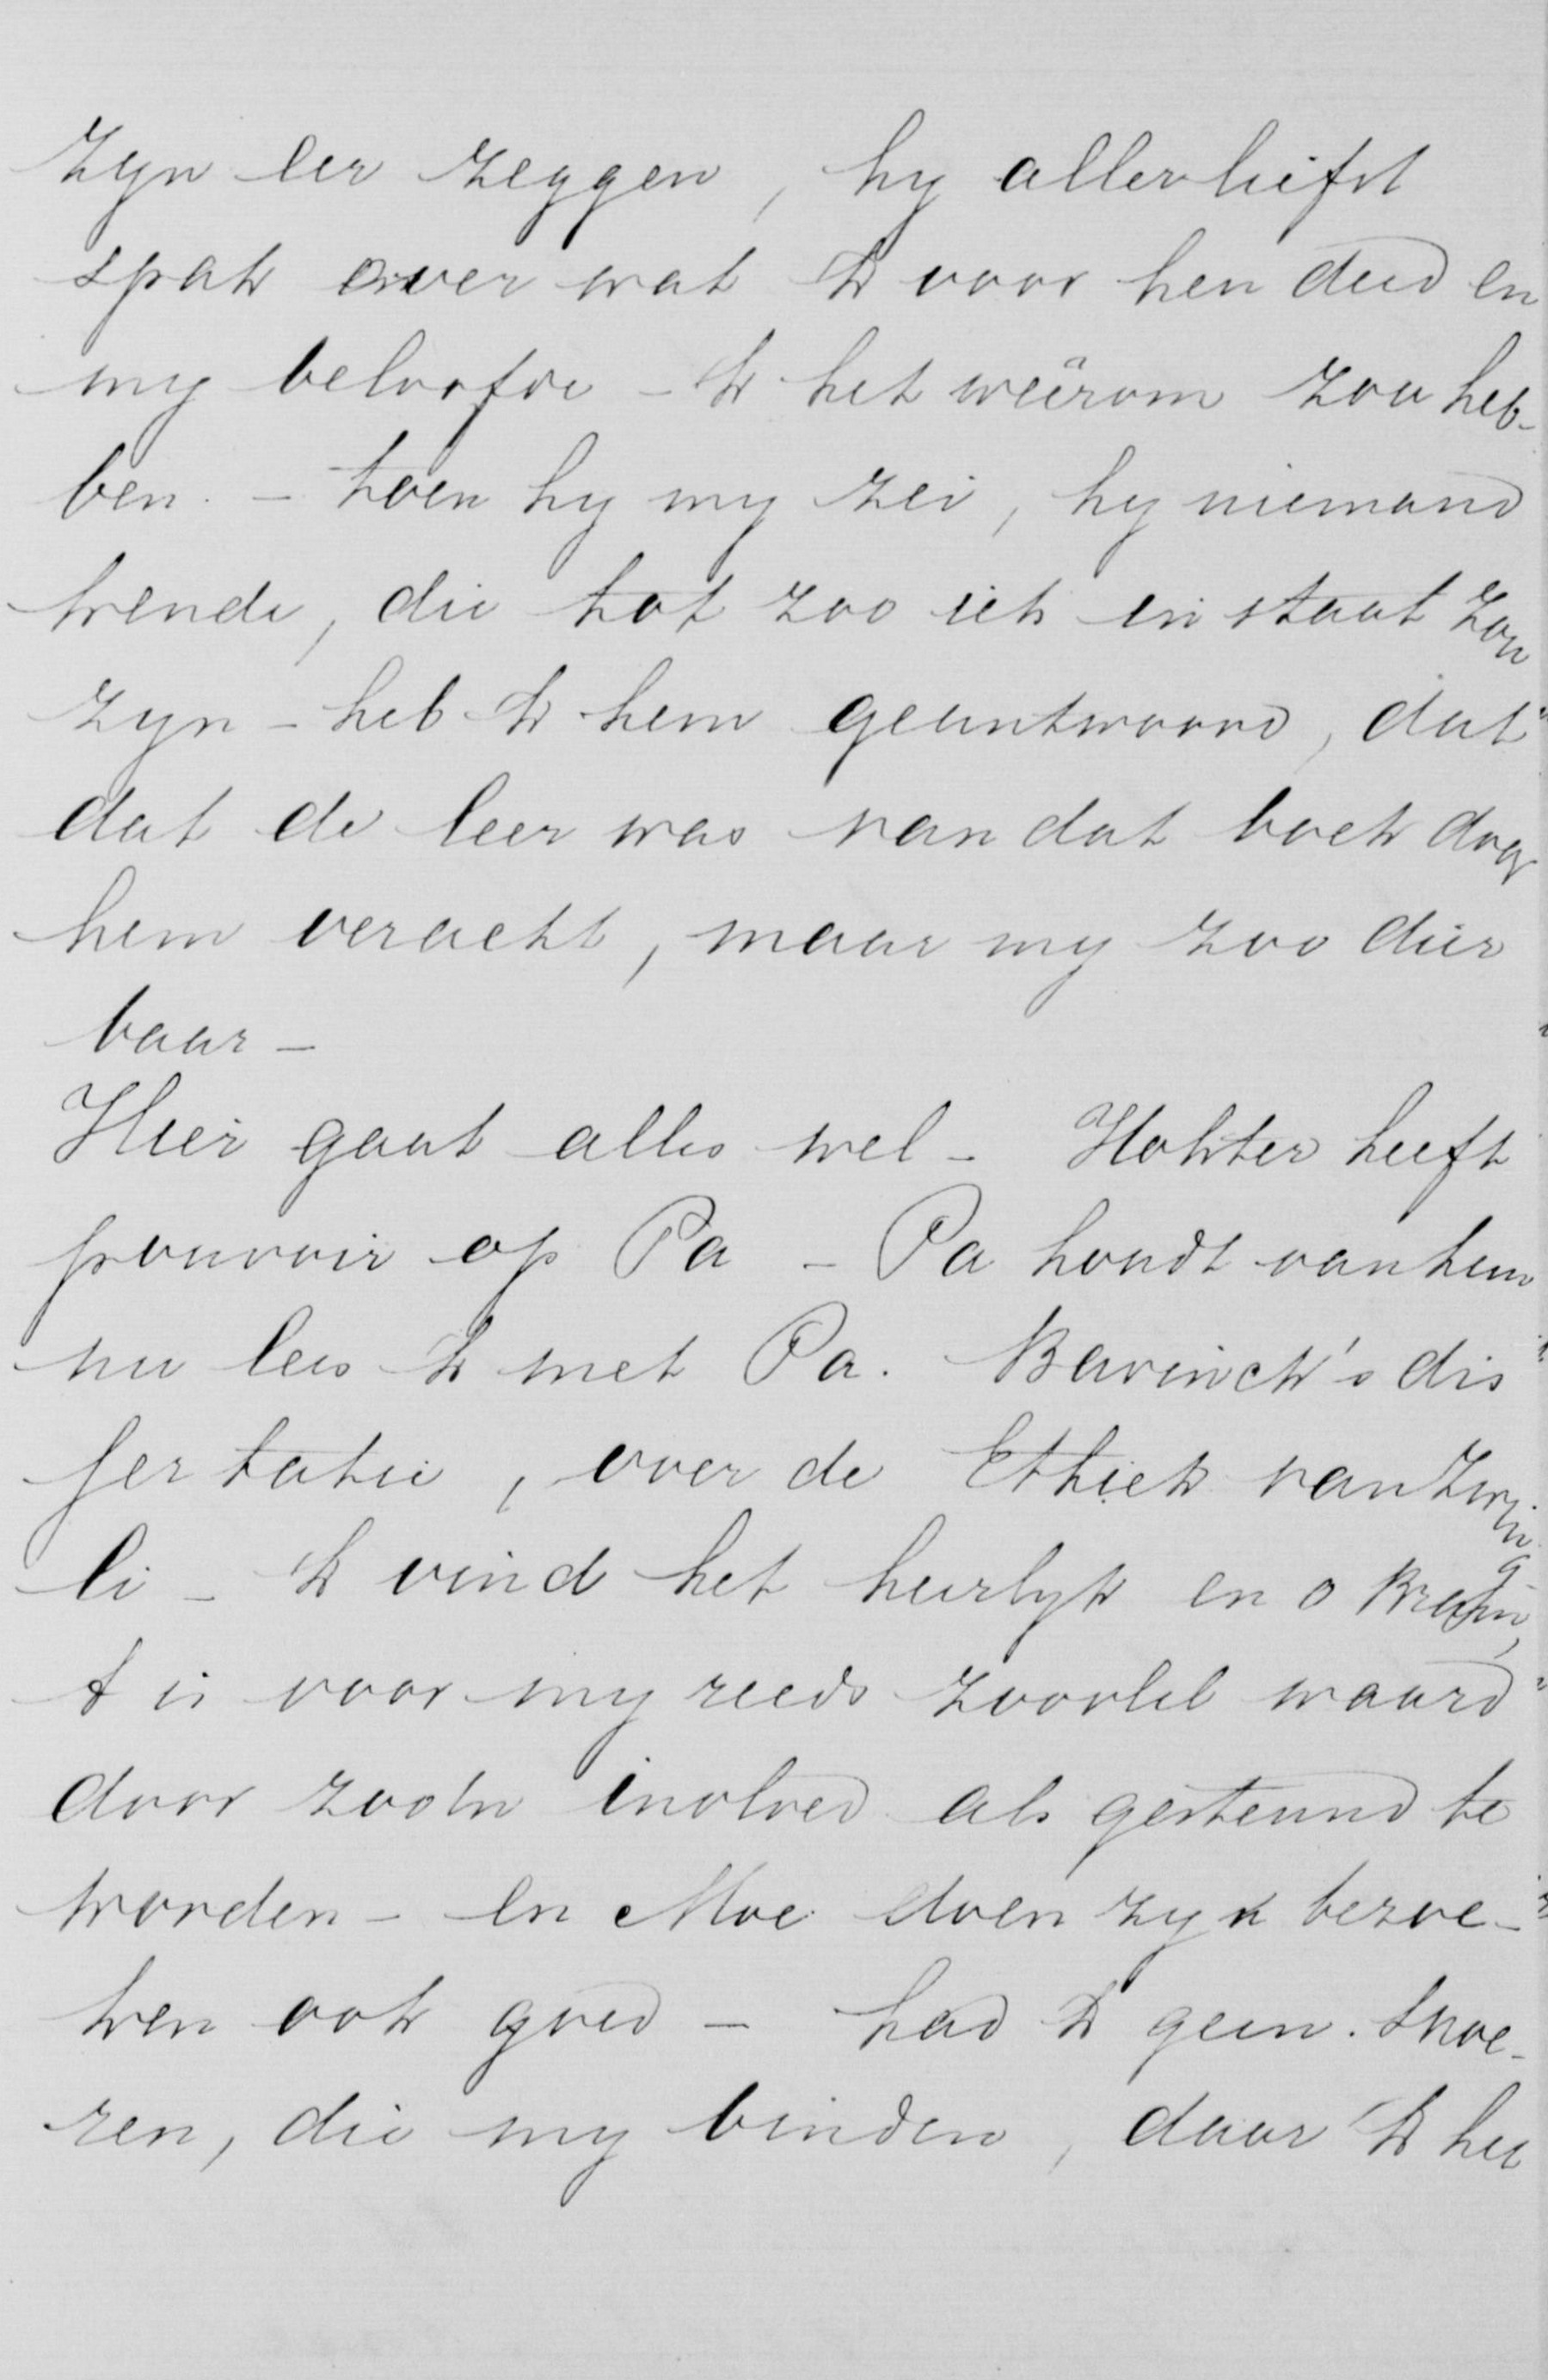 zyn eer zeggen, hy allerliefst
sprak over wat 'k voor hen deed en
my beloofde – 'k het weêrom zou heb-
ben. – toen hy my zei, hy niemand
kende, die tot zoo iets in staat zou
zyn – heb 'k hem geantwoord, dat
dat de leer was van dat boek door
hem veracht, maar my zoo dier
baar –
Hier gaat alles wel – Hokter heeft
pouvoir op Pa – Pa houdt van hem
nu lees 'k met Pa. Bavinck's dis
sertatie, over de Ethiek van Zwing
li – 'k vind het heerlyk en o Bram,
t is voor my reeds zooveel waard
door zoo'n invloed als gesteund te
worden – en Moe doen zyn bezoe-
ken ook goed – had 'k geen snoe-
ren, die my binden, daar 'k het